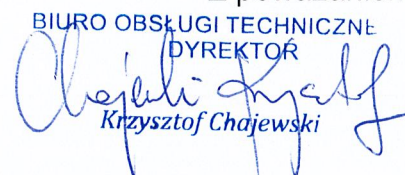 Z poważaniem
BIURO OBSŁUGI TECHNICZNE
DYREKTOR
Krzysztof Chajewski